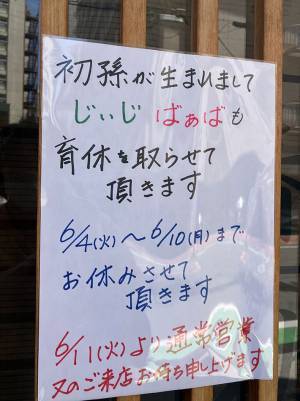 初孫が生まれまして
じぃじ ばぁばも
育休を取らせて
頂きます
6/4(火)～6/10(月)まで
お休みさせて
頂きます
6/11(火)より通常営業
又のご来店お待ち申し上げます